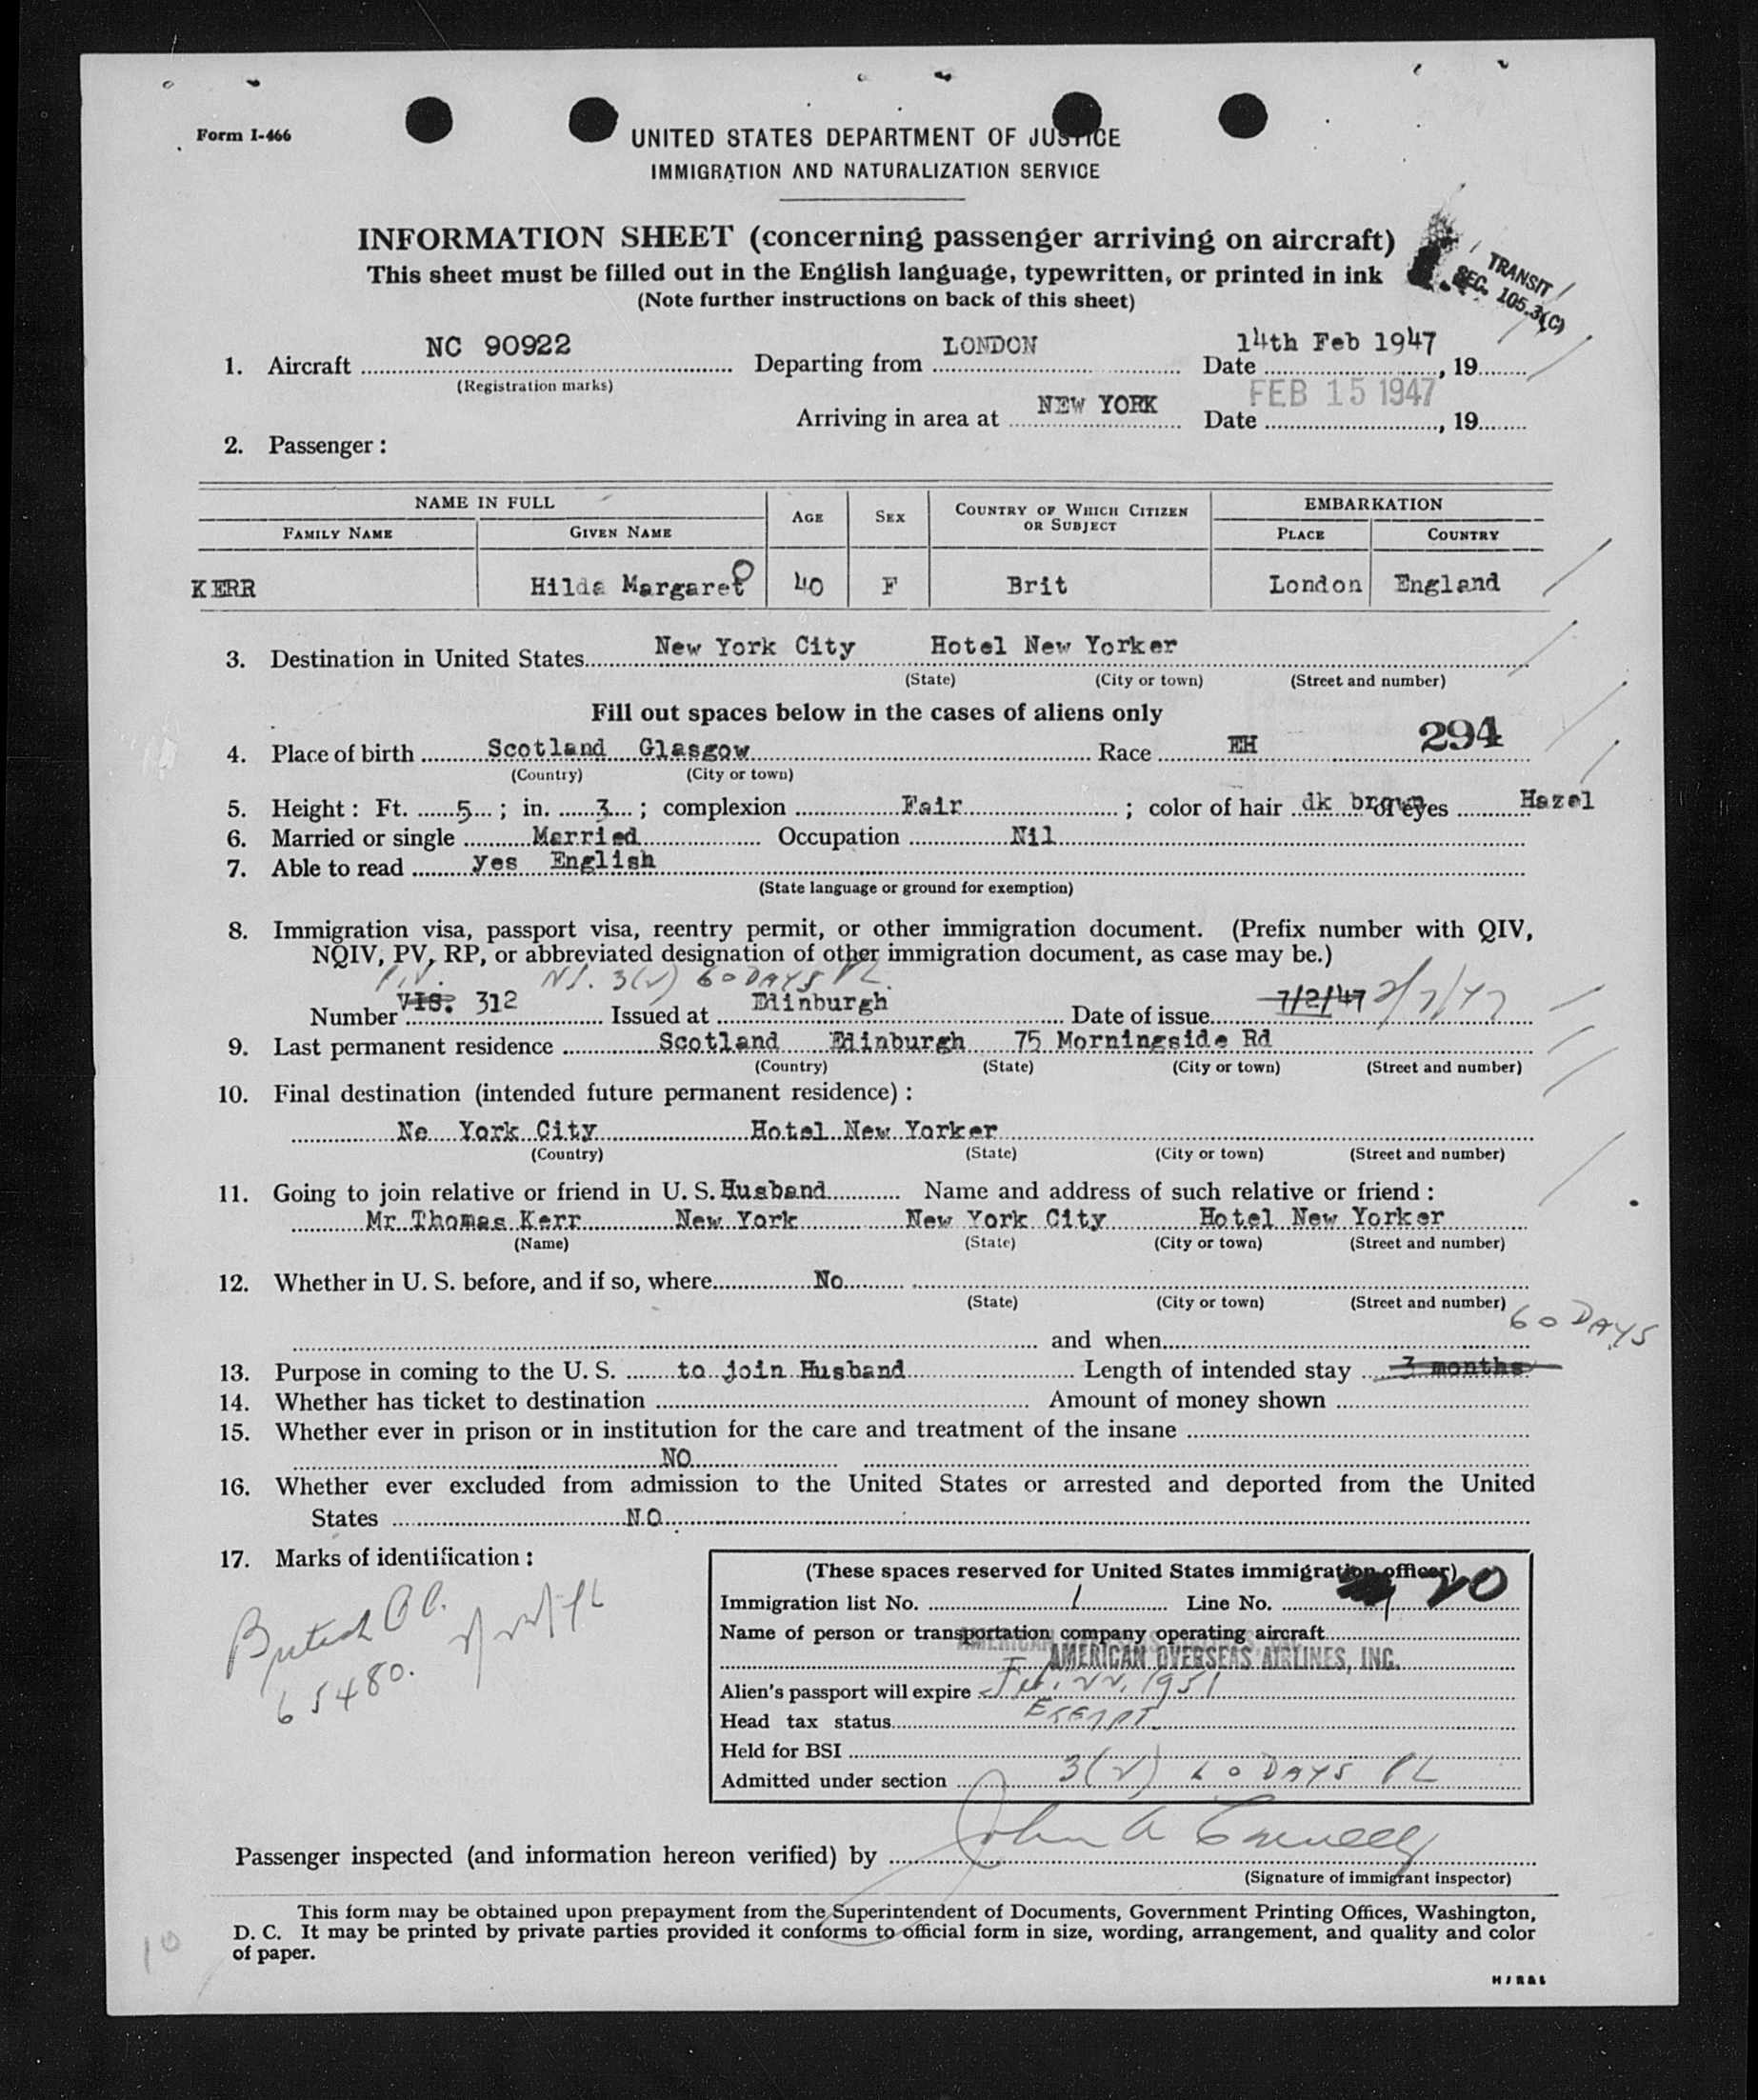 Form I-466
UNITED STATES DEPARTMENT OF JUSTICE
IMMIGRATION AND NATURALIZATION SERVICE
INFORMATION SHEET (concerning passenger arriving on aircraft)
This sheet must be filled out in the English language, typewritten, or printed in ink
(Note further instructions on back of this sheet)
TRANSIT
SEC. 105.3(C)
1. Aircraft NC 90922 Departing from LONDON Date 14th Feb 1947, 19
(Registration marks)
Arriving in area at NEW YORK Date FEB 15 1947, 19
2. Passenger :
NAME IN FULL AGE SEX COUNTRY OF WHICH CITIZEN OR SUBJECT EMBARKATION
FAMILY NAME GIVEN NAME PLACE COUNTRY
KERR Hilda Margaret 40 F Brit London England
3. Destination in United States New York City Hotel New Yorker
(State) (City or town) (Street and number)
Fill out spaces below in the cases of aliens only
294
4. Place of birth Scotland Glasgow Race EH
(Country) (City or town)
5. Height : Ft. 5 ; in. 3 ; complexion Fair ; color of hair dk brown of eyes Hazel
6. Married or single Married Occupation Nil
7. Able to read yes English
(State language or ground for exemption)
8. Immigration visa, passport visa, reentry permit, or other immigration document. (Prefix number with QIV,
NQIV, PV, RP, or abbreviated designation of other immigration document, as case may be.)
P.V. 3(2) 60 DAYS PL.
Number VIS: 312 Issued at Edinburgh Date of issue 7/2/47 2/7/47
9. Last permanent residence Scotland Edinburgh 75 Morningside Rd
(Country) (State) (City or town) (Street and number)
10. Final destination (intended future permanent residence) :
Ne York City Hotel New Yorker
(Country) (State) (City or town) (Street and number)
11. Going to join relative or friend in U. S. Husband Name and address of such relative or friend :
Mr Thomas Kerr New York New York City Hotel New Yorker
(Name) (State) (City or town) (Street and number)
12. Whether in U. S. before, and if so, where No
(State) (City or town) (Street and number)
60 DAYS
and when
13. Purpose in coming to the U. S. to join Husband Length of intended stay 3 months
14. Whether has ticket to destination Amount of money shown
15. Whether ever in prison or in institution for the care and treatment of the insane
NO
16. Whether ever excluded from admission to the United States or arrested and deported from the United
States NO
17. Marks of identification :
British
65480.
(These spaces reserved for United States immigration officer)
Immigration list No. 1 Line No. 20
Name of person or transportation company operating aircraft
AMERICAN OVERSEAS AIRLINES, INC.
Alien's passport will expire Jan. 22, 1951
Head tax status EXEMPT.
Held for BSI
Admitted under section 3(2) 60 DAYS PL
Passenger inspected (and information hereon verified) by John A
(Signature of immigrant inspector)
This form may be obtained upon prepayment from the Superintendent of Documents, Government Printing Offices, Washington,
D. C. It may be printed by private parties provided it conforms to official form in size, wording, arrangement, and quality and color
of paper.
10